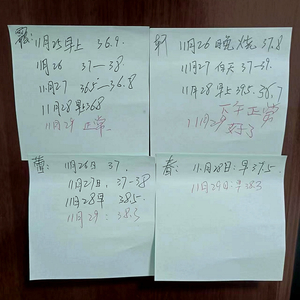 11月25早上 36.9.
11月26 37—38
11月27 36.5—36.8
11月28早368
11月29 正常.
轩 11月26晚烧37.8
11月27白天37-39.
11月28早上39.5.38.7
下午正常
11月29好了
蕾: 11月26日 37,
11月27日, 37-38
11月28早 38.5.
11月29: 38.3
春: 11月28日:早37.5
11月29日:早38.3